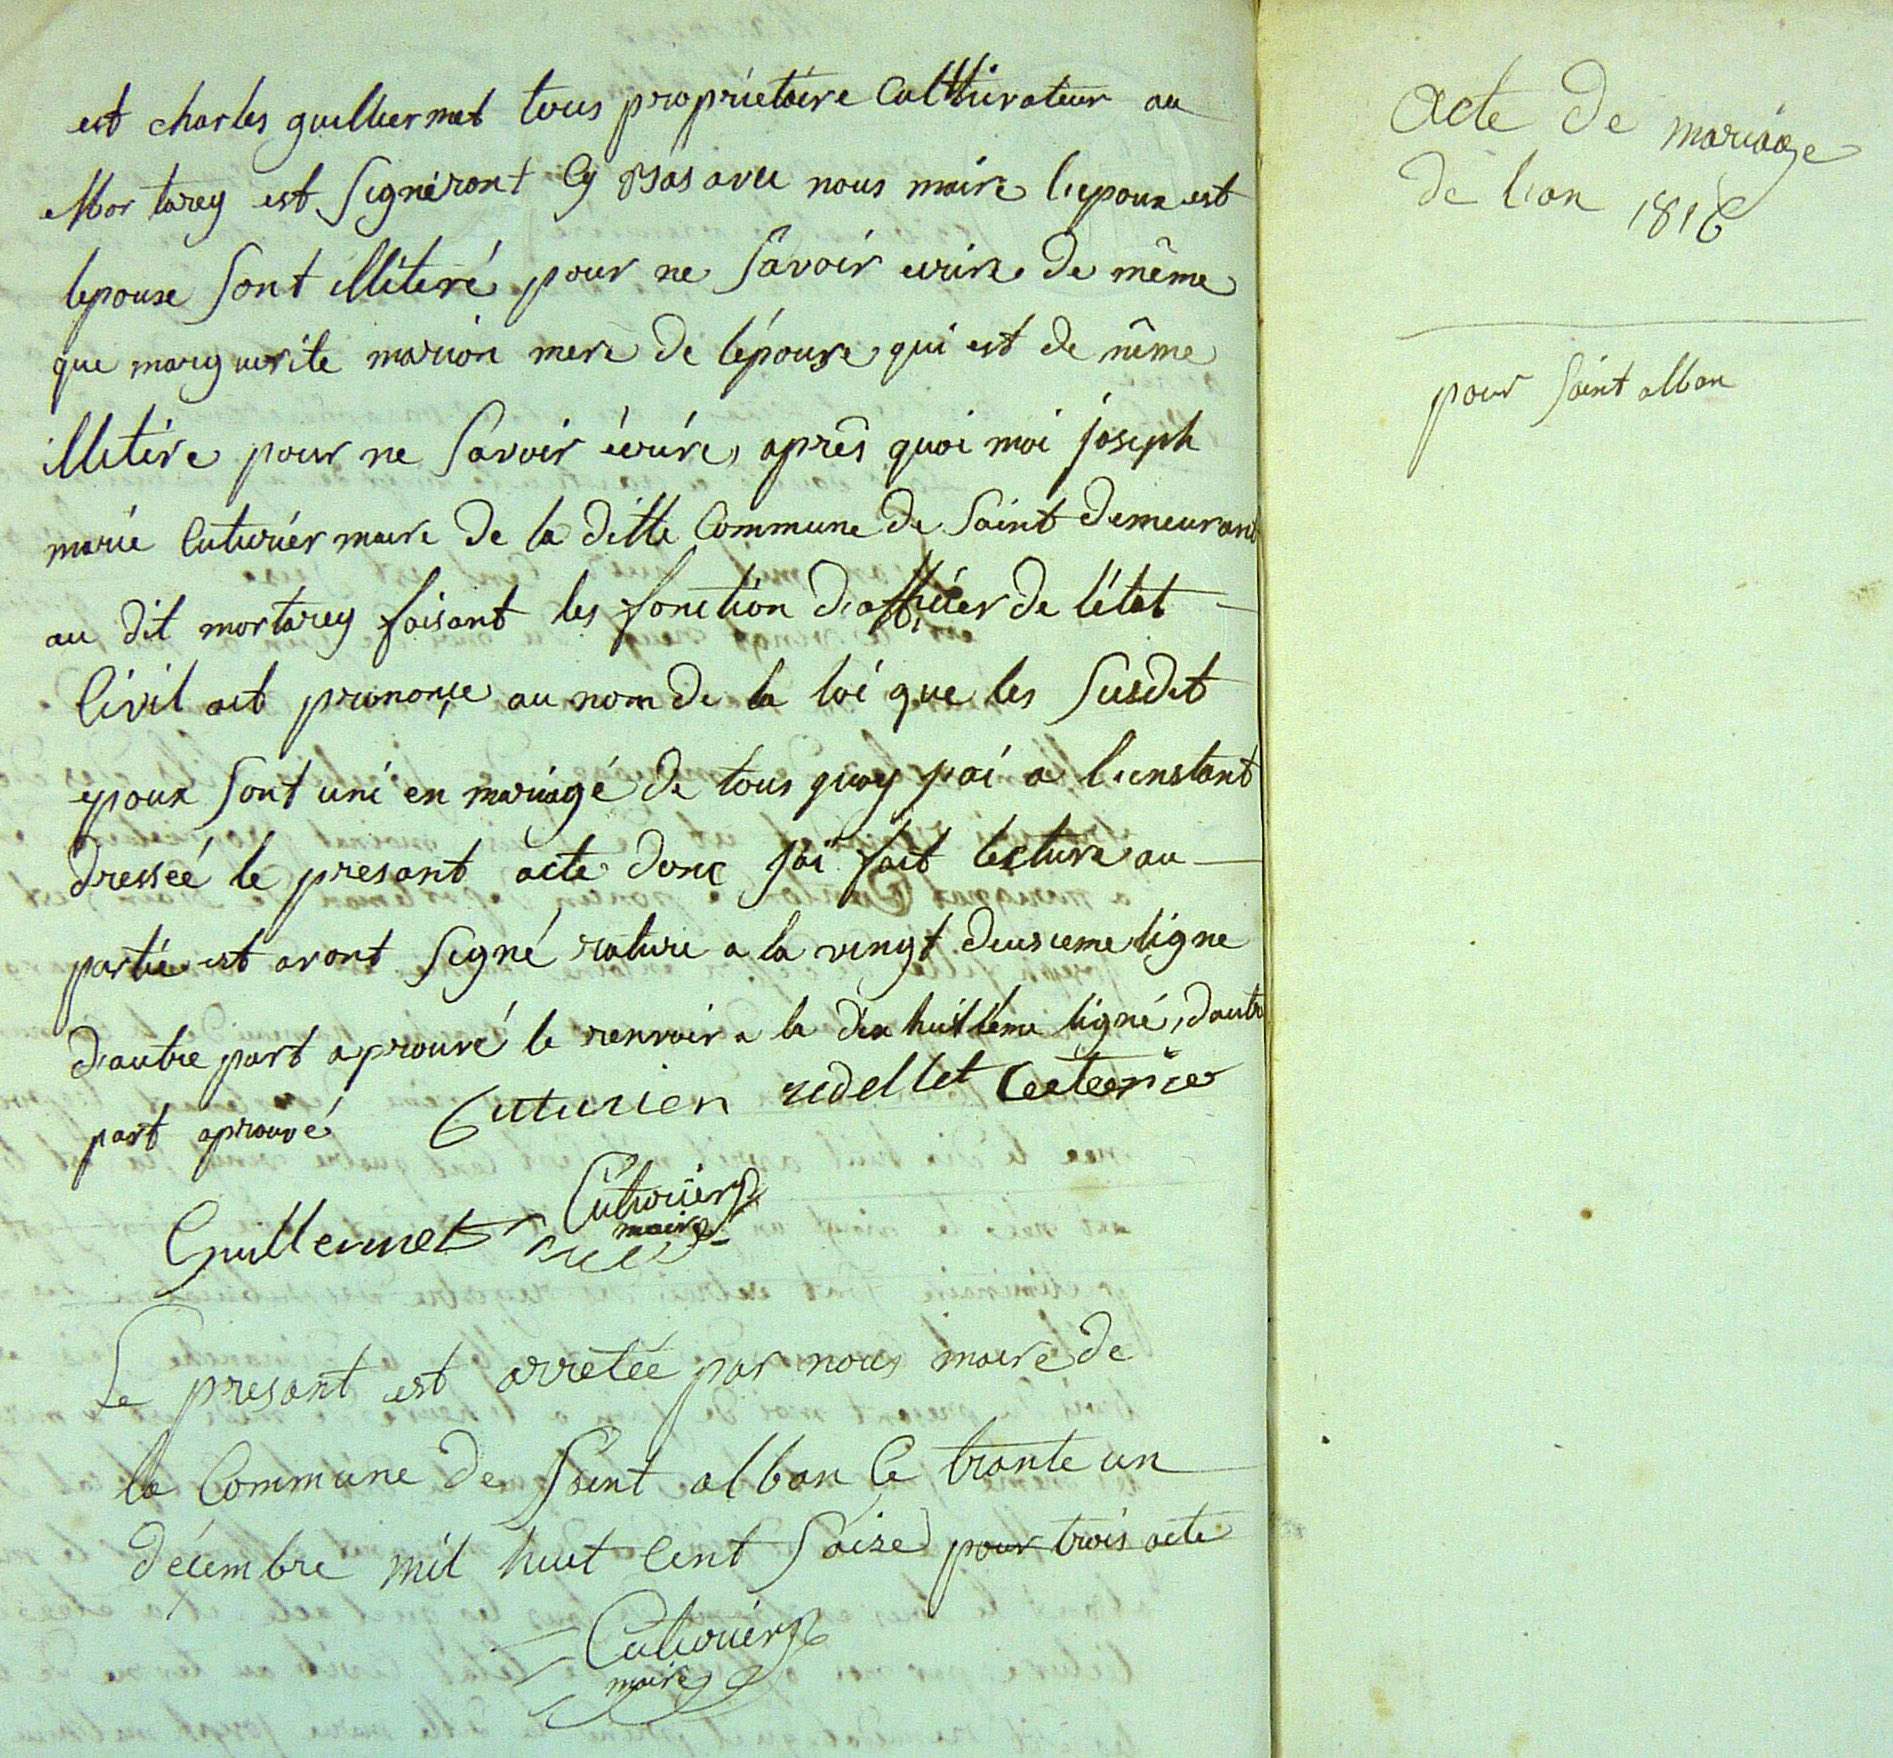 est charles guilliermet tous proprietaire Culttivateur au
Mortarey est signéront Cy bas avec nous maire l'epoux est
lepouse sont illiteré pour ne savoir ecrire de même
que marguerite marion mere de l'épouse qui est de même
illitére pour ne savoir écrire, après quoi moi joseph
marie Cuturiér maire de la ditte Commune de saint demeurant
au dit mortarey faisant les fonction d'officiér de l'état
Civil aet prononçe au nom de la loi que les susdit
epoux sont uni en mariagé de tous quoy j'ai a l'instant
dresseé le presant acte donc j'ai fait lecture au
partie est avont signé rature a la vingt deusieme ligne
d'autre part aprouvé le renvoir a la dix huitieme ligné, d'autre
part aprouvé Cuturien redellet Ceuterier
Guillermet Cuturiér
maire
Le presant est arreteé par nous maire de
la Commune de saint alban le trante un
décembre mil huit Cent saize pour trois acte
Cuturiér
maire
Acte de mariage
de l'an 1816
pour saint alban